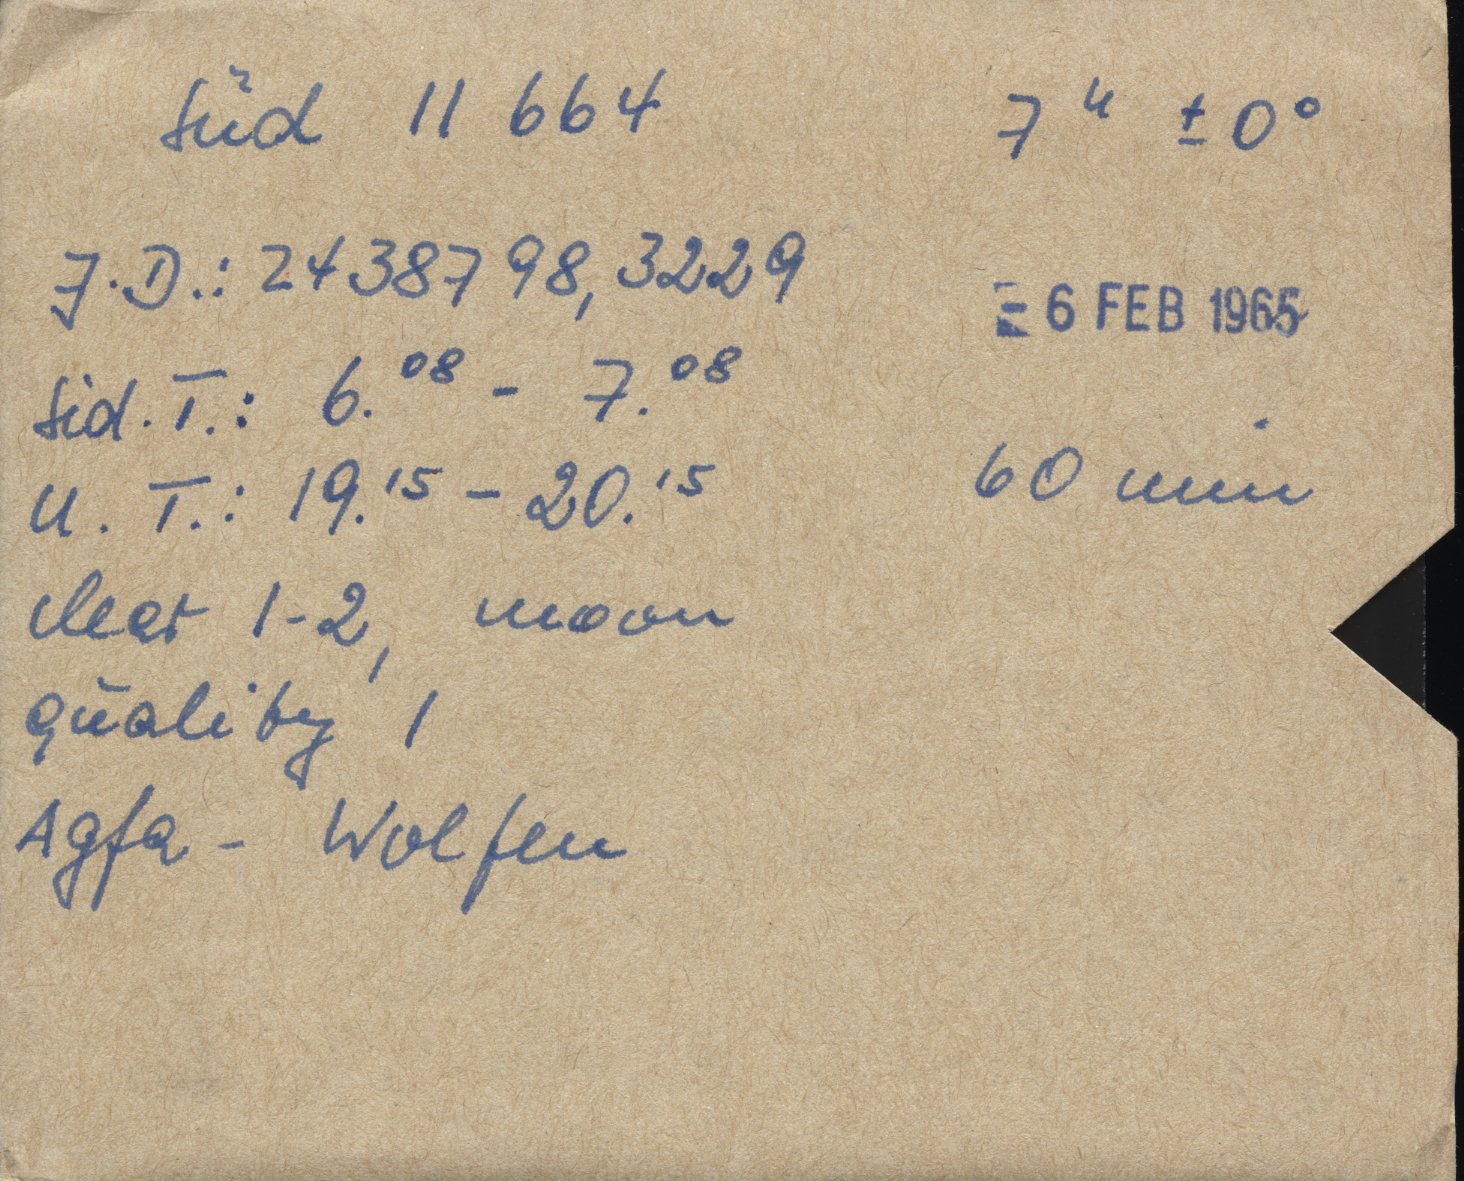 Süd 11 664 7ʰ ±0°
J.D.: 2438798,3229
- 6 FEB 1965
Sid. T.: 6.⁰⁸ - 7.⁰⁸
U. T.: 19.¹⁵ - 20.¹⁵
60 min
clear 1-2, moon
quality 1
Agfa - Wolfen